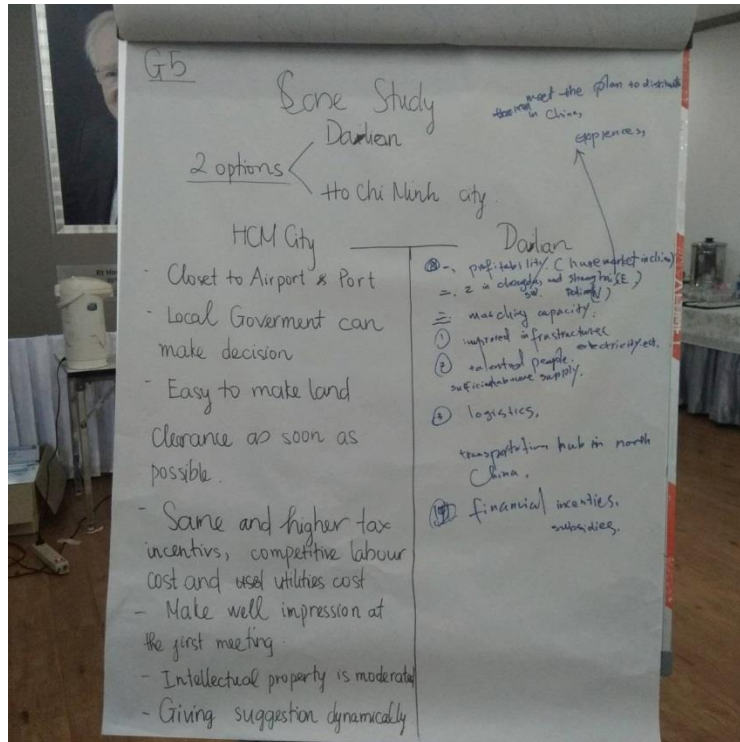 G5
Scne Study
meet the plan to distribute
in China,
expriences,
2 options
Dailian
Ho Chi Minh city.
HCM City
- Closet to Airport & Port
- Local Goverment can
make decision
- Easy to make land
clearance as soon as
possible.
- Same and higher tax
incentivs, competitive labour
cost and utilities cost
- Make well impression at
the first meeting.
- Intellectual property is moderated
- Giving suggestion dynamically
Dailian
一, profitability. (huge market in china)
二, 2 in chengdu, and shanghai
三, matching capacity:
① improved infrastructures
electricity.ect.
② talented people.
supply.
③ logistics,
transportation hub in north
China.
④ financial incenties,
subsidies.